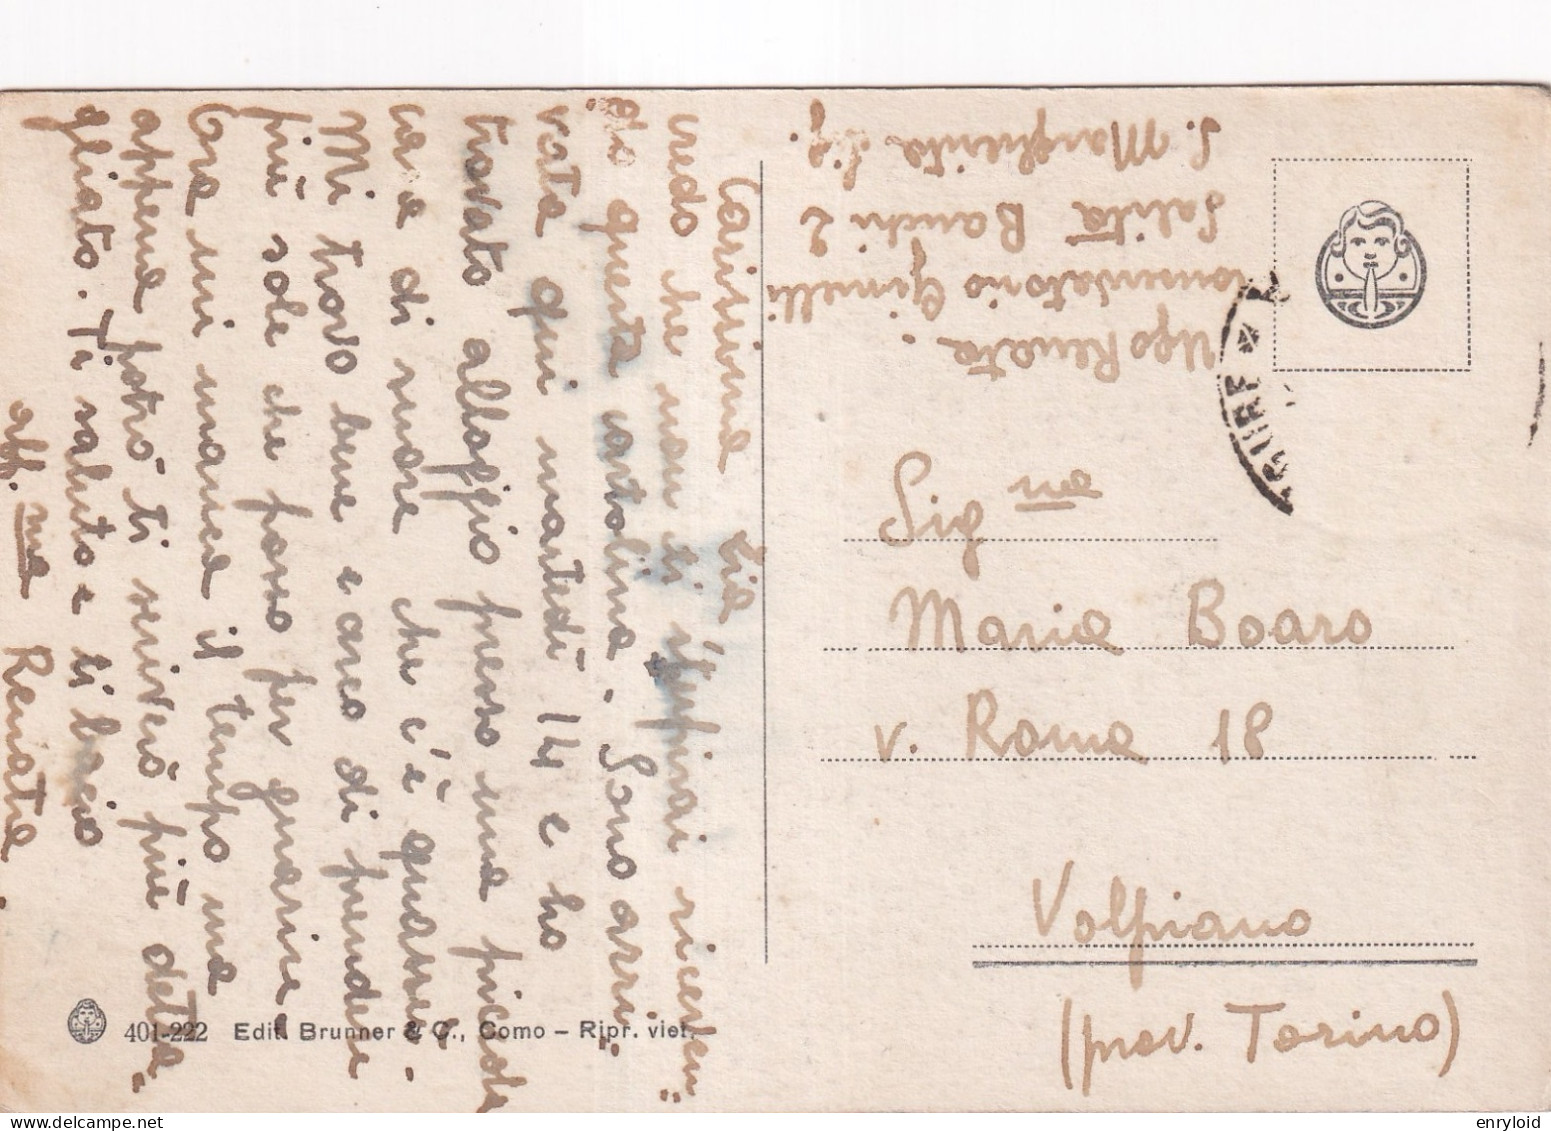 Carissima zia
credo che non ti stupirai riceven„
do questa cartolina. Sono arri„
vata qui martedì 14 e ho
trovato alloggio presso una piccola
casa di suore che c'è quassù.
Mi trovo bene e cerco di prendere
più sole che posso per guarire.
Ora mi manca il tempo ma
appena potrò ti scriverò più detta„
gliato. Ti saluto e ti bacio
aff.ma Renata.
Ugo Renata.
Convalescenziario Gimelli
Salita Banchi 2
S. Margherita Lig.
Sig na
Maria Boaro
v. Roma 18
Volpiano
(prov. Torino)
GURE
401-222 Edit. Brunner & C., Como – Ripr. viet.
enryloid